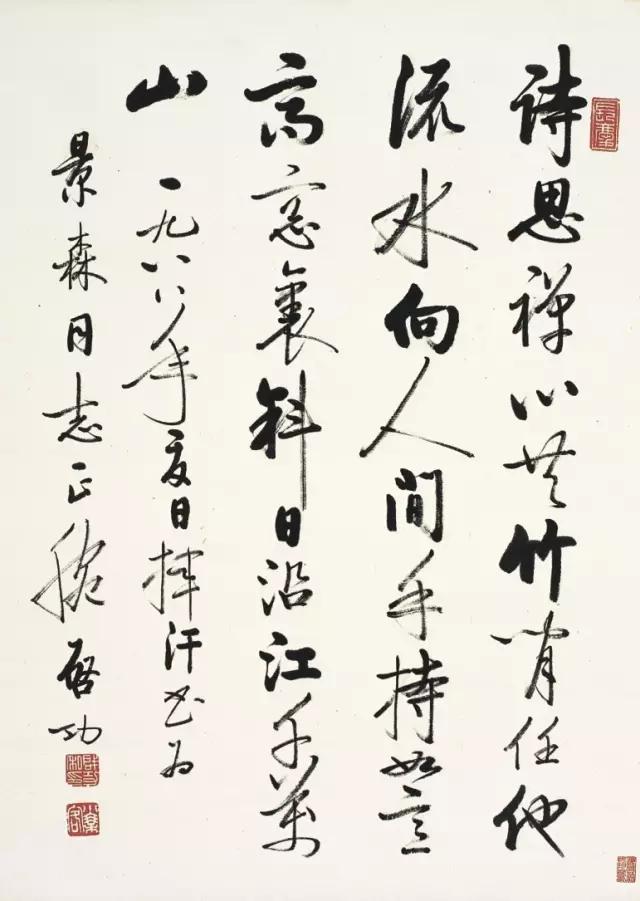 詩思禪心共竹閒任他
流水向人間手持如意
高窓裏斜日沿江千萬
山 一九八八年夏日揮汗書為
景森同志正腕 啓功